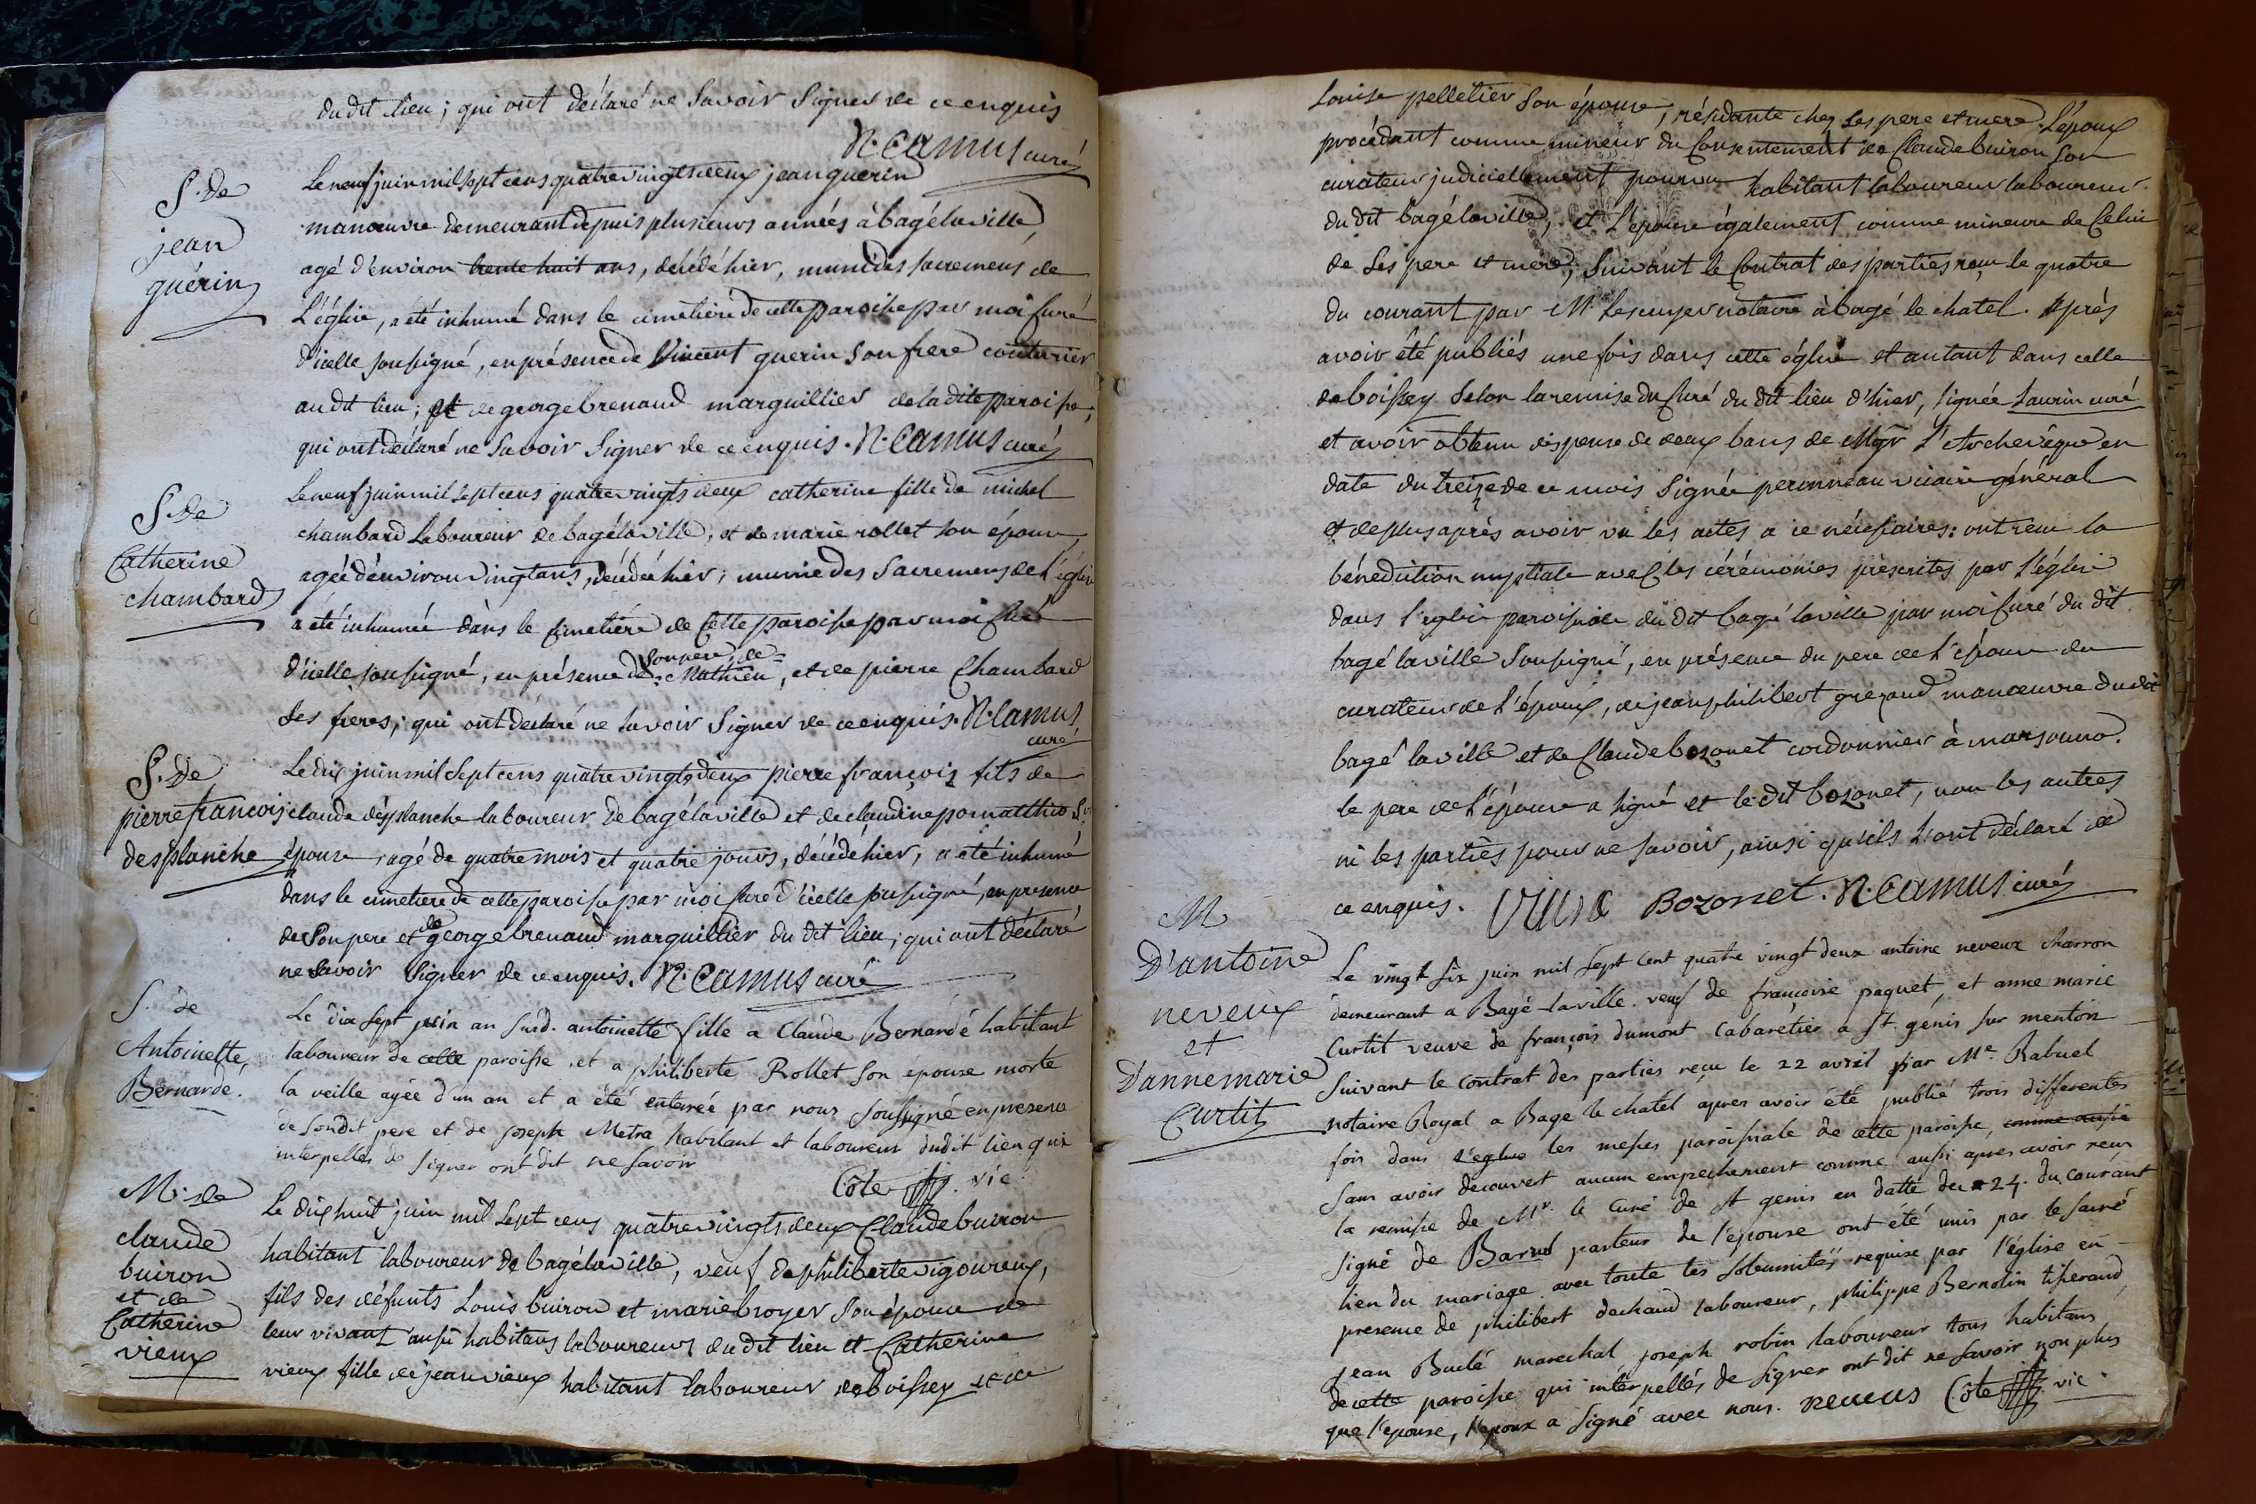 du dit lieu ; qui ont déclaré ne savoir signer de ce enquis
N. Camus curé
S. de
jean
guérin
Le neuf juin mil sept cens quatre vingts deux jean guerin
manœuvre demeurant depuis plusieurs années à bagé la ville
agé d'environ trente huit ans, décédé hier, muni des sacremens de
L'église, a été inhumé dans le cimetière de cette paroisse par moi curé
d'icelle soussigné, en présence de Vincent guerin son frere couturier
au dit lieu ; et de george brenaud marguillier de la dite paroisse,
qui ont déclaré ne savoir signer de ce enquis. N. Camus curé
S. de
Catherine
chambard
Le neuf juin mil sept cens quatre vingts deux catherine fille de michel
chambard laboureur de bagé la ville, et de marie rollet son épouse
agée d'environ vingt ans, décédée hier, munie des sacremens de l'église
a été inhumée dans le cimetière de cette paroisse par moi curé
d'icelle soussigné, en présence de son pere, de Mathieu, et de pierre Chambard
ses freres ; qui ont déclaré ne savoir signer de ce enquis. N. Camus
curé
S. de
pierre francois
desplanche
Le dix juin mil sept cens quatre vingts deux pierre françois fils de
claude desplanche laboureur de bagé la ville et de claudine pomatthio s.
épouse, agé de quatre mois et quatre jours, décédé hier, a été inhumé
dans le cimetiere de cette paroisse par moi curé d'icelle soussigné, en presence
de son pere et de george brenaud marguillier du dit lieu ; qui ont déclaré
ne savoir signer de ce enquis. N. Camus curé
S. de
Antoinette
Bernardé.
Le dix sept juin an susd. antoinette fille a Claude Bernardé habitant
laboureur de cette paroisse et a philiberte Rollet son epouse morte
la veille agée d'un an et a été enterrée par nous soussigné en presence
de sondit pere et de joseph Metra habitant et laboureur dudit lieu qui
interpellés de signer ont dit ne savoir
Côte vic.
M. de
claude
buiron
et de
Catherine
vieux
Le dix huit juin mil sept cens quatre vingts deux Claude buiron
habitant laboureur de bagé la ville, veuf de philiberte vigoureux,
fils des défunts Louis buiron et marie broyer son épouse de
leur vivant aussi habitans laboureurs du dit lieu et Catherine
vieux fille de jean vieux habitant laboureur de boissey et de
Louise pelletier son épouse, résidante chez ses pere et mere. L'époux
procédant comme mineur du Consentement de Claude buiron son
curateur judiciellement pourvu habitant laboureur laboureur
du dit bagé la ville, et L'épouse également comme mineure de Celui
de ses pere et mere, suivant le Contrat des parties reçu le quatre
du courant par Me Lescuyer notaire à bagé le chatel. Après
avoir été publiés une fois dans cette église et autant dans celle
de boissey selon la remise du Curé du dit lieu d'hier, signée Saurin curé
et avoir obtenu dispense de deux bans de Mgr L'Archevêque en
date du treize de ce mois signée peronneau vicaire général
et de plus après avoir vu les actes a ce nécessaires : ont reçu la
bénediction nuptiale avec les cérémonies prescrites par l'église
dans l'église paroissiale du dit bagé la ville par moi Curé du dit
bagé la ville soussigné, en présence du pere de l'épouse du
curateur de l'époux, de jean philibert grezaud manœuvre du dit
bagé la ville et de Claude bozonet cordonnier à marsonna.
le pere de l'épouse a signé et le dit bozonet, non les autres
ni les parties pour ne savoir, ainsi qu'ils l'ont déclaré de
ce enquis. Bozonet. N. Camus curé
M
D'antoine
neveux
et
D'anne marie
Curtit
Le vingt six juin mil sept cent quatre vingt deux antoine neveux charron
demeurant a Bagé la ville veuf de françoise paquet et anne marie
Curtit veuve de françois dumont Cabaretier a St. genis sur menton
suivant le contrat des parties reçu le 22 avril par Me. Rabuel
notaire Royal a Bage le chatel apres avoir été publié trois differentes
fois dans l'eglise les messes paroissiale de cette paroisse, comme aussi
sans avoir decouvert aucun empechement comme aussi apres avoir reçu
la remise de Mr. le Curé de St genis en datte du 24. du courant
signé de Barud pasteur de l'epouse ont été unis par le sacré
lien du mariage avec toute les solemnités requise par l'église en
presence de philibert dechaud laboureur, philippe Bernolin tisserand
jean Buclé marechal joseph robin laboureur tous habitans
de cette paroisse qui interpellés de signer ont dit ne savoir non plus
que l'epouse, l'epoux a signé avec nous. neveus Côte vic.